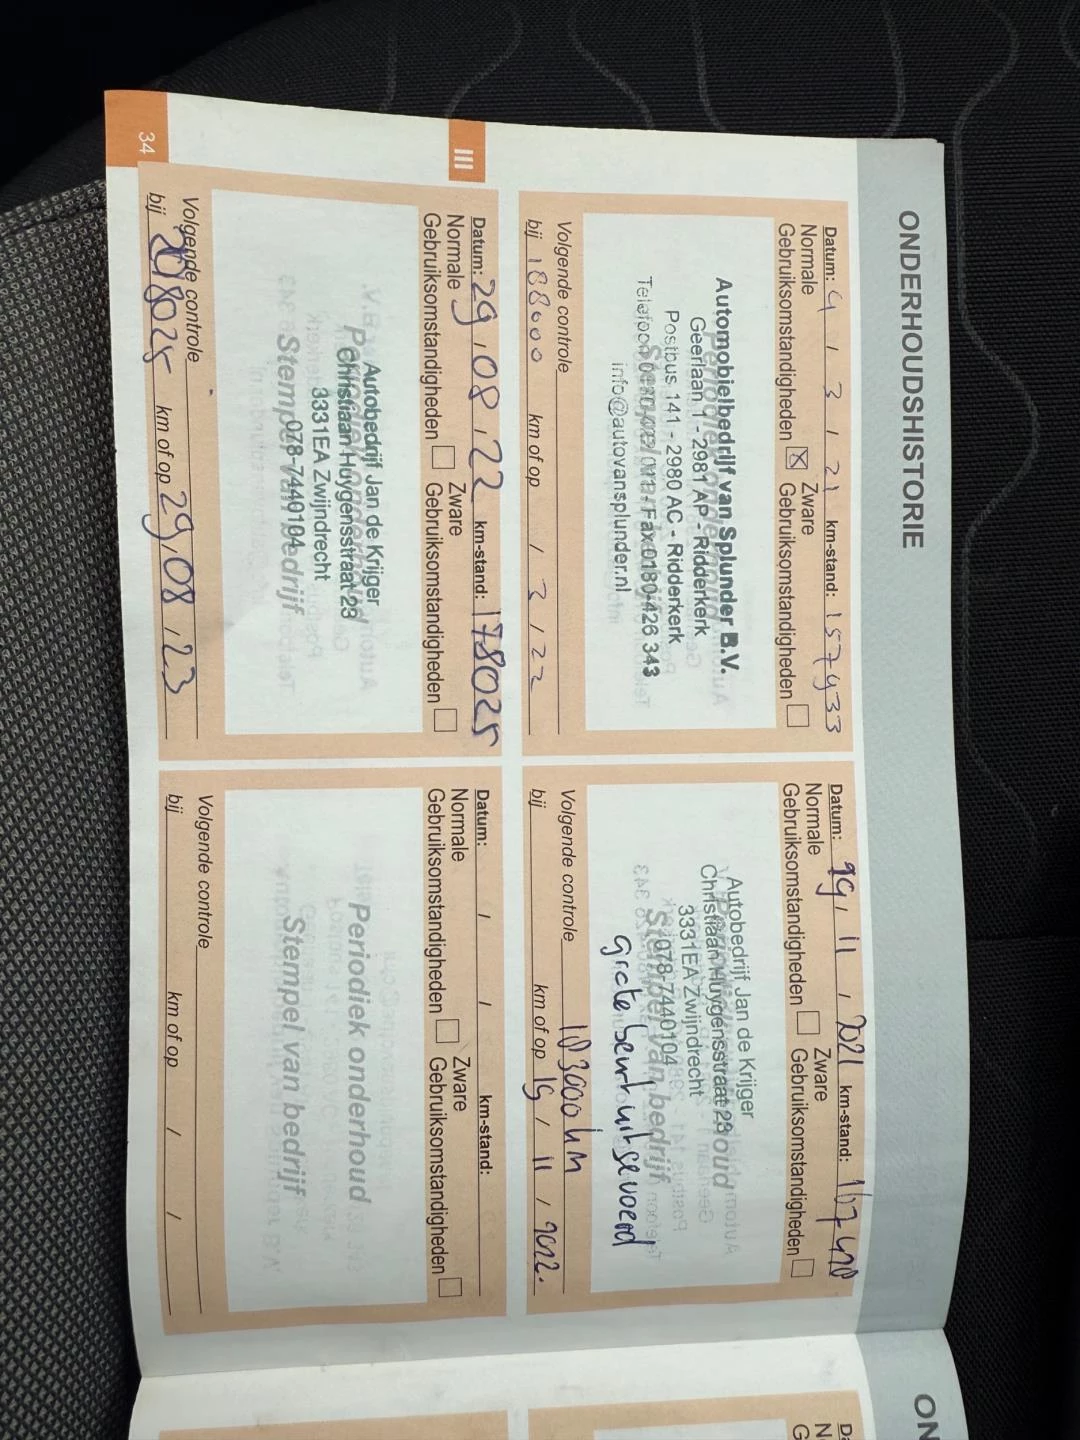 ONDERHOUDSHISTORIE
Datum: 4 / 3 / 21 km-stand: 157933
Normale Zware
Gebruiksomstandigheden ☒ Gebruiksomstandigheden ☐
Automobielbedrijf van Splunder B.V.
Geerlaan 1 - 2981 AP - Ridderkerk
Postbus 141 - 2980 AC - Ridderkerk
Telefoon Fax 0180-426 343
info@autovansplunder.nl
Volgende controle
bij 188000 km of op / 3 / 22
Datum: 19 / 11 / 2021 km-stand:
Normale Zware
Gebruiksomstandigheden ☐ Gebruiksomstandigheden ☐
Autobedrijf Jan de Krijger
Christiaan Huygensstraat 23
3331EA Zwijndrecht
078-7440104
Stempel van bedrijf
grote beurt uitgevoerd
Volgende controle 183000 km
bij km of op 19 / 11 / 2022.
III
Datum: 29 / 08 / 22 km-stand: 178025
Normale Zware
Gebruiksomstandigheden ☐ Gebruiksomstandigheden ☐
Autobedrijf Jan de Krijger
Christiaan Huygensstraat 23
3331EA Zwijndrecht
078-7440104
Stempel van bedrijf
Volgende controle
bij 218025 km of op 29 / 08 / 23
Datum: / / km-stand:
Normale Zware
Gebruiksomstandigheden ☐ Gebruiksomstandigheden ☐
Periodiek onderhoud
Stempel van bedrijf
Volgende controle
bij km of op / /
34
ON